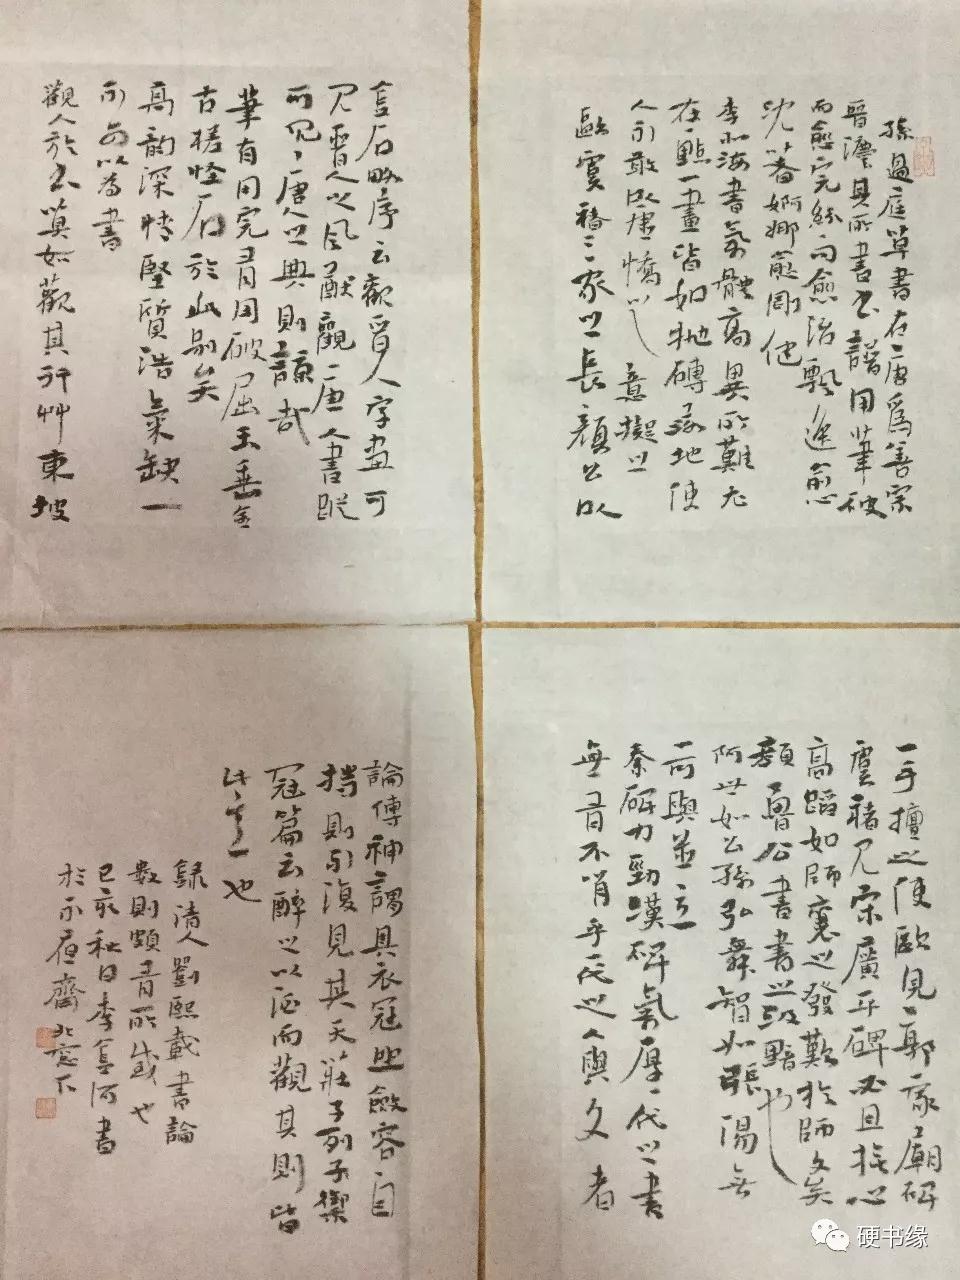 孫過庭草書在唐爲善宗
晉灋其所書書譜用筆破
而愈完紛而愈治飄逸愈
沈著婀娜愈剛健
李北海書氣體高異所難尤
在一點一畫皆如抛磚落地使
人不敢以虛憍之意擬之
歐虞褚三家之長顏公以
一手擅之使歐見郭家廟碑
虞褚見宋廣平碑必且撫心
高蹈如師襄之發歎於師文矣
顏魯公書書之汲黯也
阿世如公孫弘舞智如張湯無
一可與並立
秦碑力勁漢碑氣厚一代之書
無有不肖乎一代之人與文者
金石略序云觀晉人字畫可
見晉人之風猷觀唐人書蹤
可見唐人之典則諒哉
筆有用完有用破屈玉垂金
古槎怪石於此別矣
高韻深情堅質浩氣缺一
不可以為書
觀人於書莫如觀其行艸東坡
論傳神謂具衣冠坐斂容自
持則不復見其天莊子列子禦
寇篇云醉之以酒而觀其則皆
此意也
錄清人劉熙載書論
數則頗有所感也
己亥秋日李河書
於不齋北窗下
硬书缘